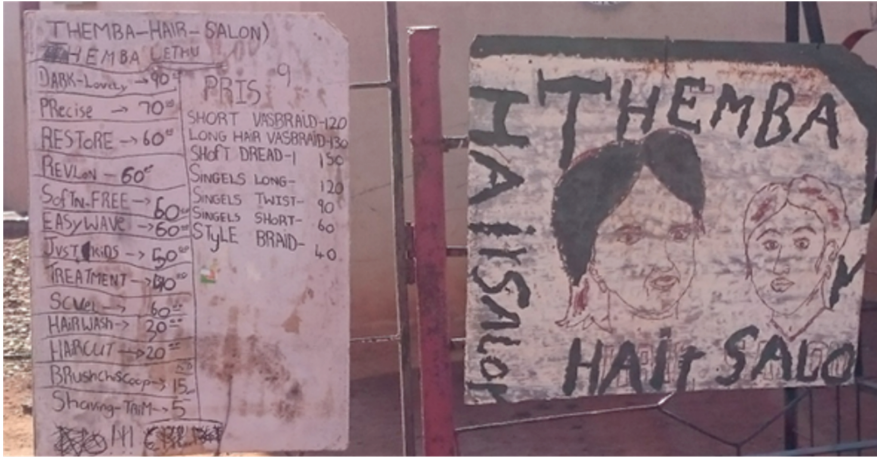 THEMBA-HAIR-SALON)
THEMBA LETHU
DARK-Lovely → 90
PRecise → 70
RESTORE → 60
REVLON - 60
SOFTN-FREE → 60
EASYWAVE → 60
JUST KIDS → 50
TREATMENT →
60
HAIRWASH → 20
HAIRCUT → 20
BRushchiscoop → 15
Shaving-TRiM → 5
PRIS 9
SHORT VASBRAID-120
LONG HAIR VASBRAID-130
SHOFT DREAD-1 150
SINGELS LONG- 120
SINGELS TWIST- 90
SINGELS SHORT- 60
STYLE BRAID- 40
THEMBA
HAIISALON
HAIr SALO
N